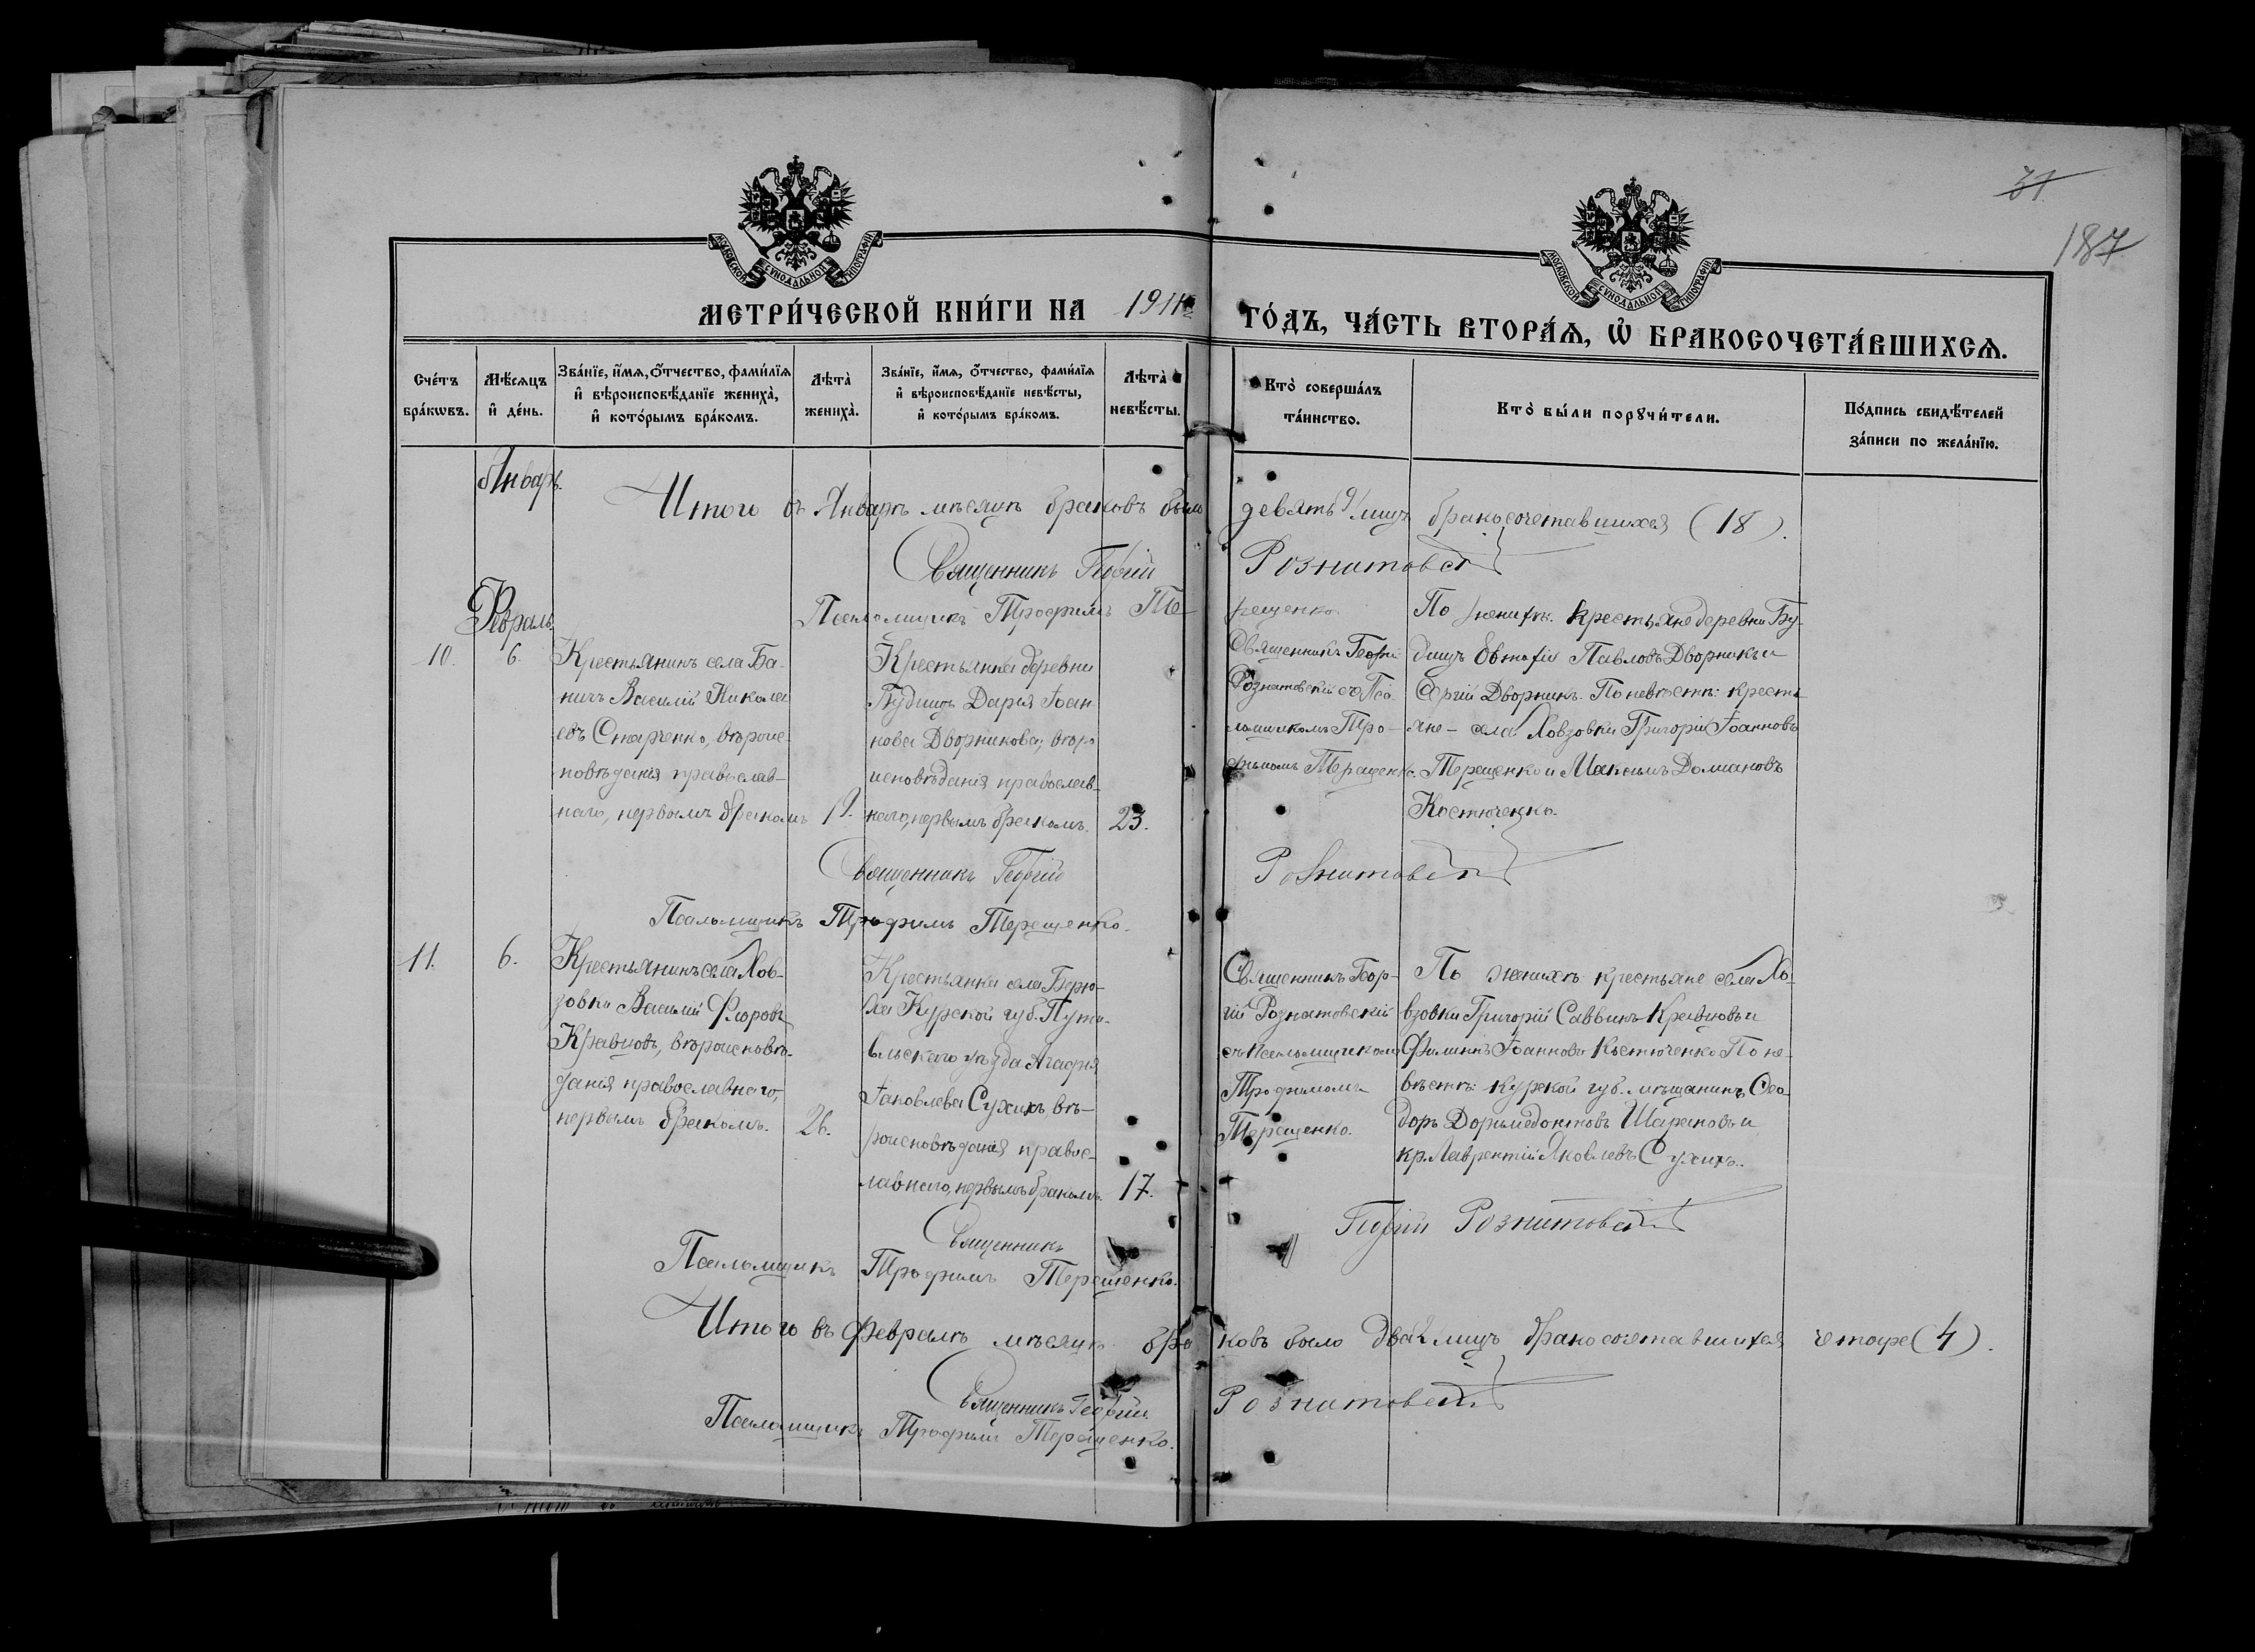 187
МОСКОВСКОЙ СѴНОДАЛЬНОЙ ТИПОГРАФІИ
МОСКОВСКОЙ СѴНОДАЛЬНОЙ ТИПОГРАФІИ
МЕТРИ́ЧЕСКОЙ КНИ́ГИ НА 1911 ГО́ДЪ, ЧА́СТЬ ВТОРА́Ѧ, Ѡ҆ БРАКОСОЧЕТА́ВШИХСѦ.
Сче́тъ бра́кѡвъ.
Мѣ́сѧцъ и҆ де́нь.
Зва́нїе, и҆́мѧ, ѻ҆́тчество, фами́лїѧ и҆ вѣроисповѣ́данїе жениха̀, и҆ кото́рымъ бра́комъ.
Лѣта̀ жениха̀.
Зва́нїе, и҆́мѧ, ѻ҆́тчество, фами́лїѧ и҆ вѣроисповѣ́данїе невѣ́сты, и҆ кото́рымъ бра́комъ.
Лѣта̀ невѣ́сты.
Кто̀ соверша́лъ та́инство.
Кто̀ бы́ли порꙋчи́тели.
По́дпись свидѣ́телей за́писи по жела́нїю.
Январь.
Итого въ Январѣ мѣсяцѣ браковъ было девять 9 лицъ бракосочетавшихся (18).
Священникъ Георгій Рознатовскій
Псаломщикъ Трофимъ Терещенко
Февраль
10.
6.
Крестьянинъ села Ба-
ничъ Василій Николա-
евъ Старченко, вѣроис-
повѣданія православ-
наго, первымъ бракомъ
19.
Крестьянка деревни
Будищъ Дарія Іоан-
нова Дворникова, вѣро
исповѣданія православ-
наго, первымъ бракомъ.
23.
Священникъ Георгій
Рознатовскій съ Пса-
ломщикомъ Тро-
фимомъ Терещенко.
По женихѣ: крестьяне деревни Бу-
дищъ Евтафій Павловъ Дворникъ и
Сергій Дворникъ. По невѣстѣ: кресть-
яне - села Ховзовки Григорій Іоанновъ
Терещенко и Максимъ Доміановъ
Костюченко.
Священникъ Георгій Рознатовскій
Псаломщикъ Трофимъ Терещенко.
11.
6.
Крестьянинъ села Хов-
зовки Василій Флоровъ
Кравцовъ, вѣроисповѣ-
данія православнаго,
первымъ бракомъ.
26.
Крестьянка села Берю-
ха Курской губ. Пути-
вльскаго уѣзда Агафія
Іаковлева Сухихъ, вѣ-
роисповѣданія правос-
лавнаго, первымъ бракомъ.
17.
Священникъ Геор-
гій Рознатовскій
съ псаломщикомъ
Трофимомъ
Терещенко.
По женихѣ: крестьяне села Хо-
взовки Григорій Саввинъ Кравцовъ и
Филиппъ Іоанновъ Костюченко По не-
вѣстѣ: Курской губ. мѣщанинъ Ѳео-
доръ Дормедонтовъ Шараповъ и
кр. Лаврентій Яковлевъ Сухихъ.
Священникъ Георгій Рознатовскій
Псаломщикъ Трофимъ Терещенко.
Итого въ Февралѣ мѣсяцѣ браковъ было два 2 лицъ бракосочетавшихся четыре (4).
Священникъ Георгій Рознатовскій
Псаломщикъ Трофимъ Терещенко.